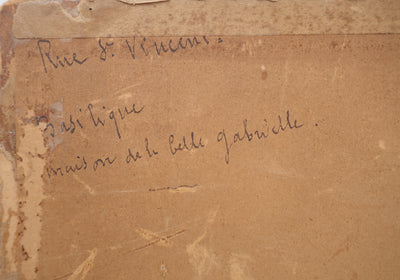 Rue St Vincent.
basilique
maison de la belle gabrielle.